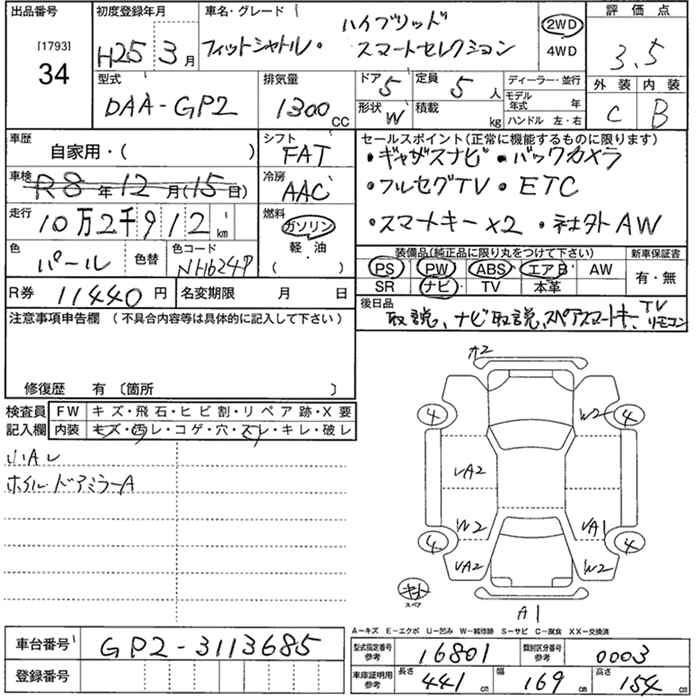 出品番号 [1793] 34
初度登録年月 H25 3月
車名・グレード フィットシャトル・ハイブリッド スマートセレクション
2WD 4WD
評価点 3.5
外装 C 内装 B
型式 DAA-GP2
排気量 1300 CC
ドア 5 定員 5 人
形状 W 積載 kg
ディーラー・並行
モデル年式 年
ハンドル 左・右
車歴 自家用・( )
シフト FAT
車検 R8年12月(15日)
冷房 AAC
走行 10万2千912 km
燃料 ガソリン 軽・油 ( )
色 パール 色替 色コード NH624P
R券 11440円 名変期限 月 日
セールスポイント(正常に機能するものに限ります)
・ギャザスナビ・バックカメラ
・フルセグTV・ETC
・スマートキーx2・社外AW
装備品(純正品に限り丸をつけて下さい) 新車保証書
PS PW ABS エアB AW 有・無
SR ナビ TV 本革
後日品
取説、ナビ取説、スペアスマートキー、TVリモコン
注意事項申告欄 (不具合内容等は具体的に記入して下さい)
修復歴 有 〔箇所 〕
検査員記入欄
FW キズ・飛石・ヒビ割・リペア跡・X要
内装 キズ・汚レ・コゲ・穴・スレ・キレ・破レ
小Aレ
ホイル・ドアミラーA
A2
4 W2 4
VA2
W2 VA1
4 VA2 W2 4
スペア
A1
A-キズ E-エクボ U-凹み W-補修跡 S-サビ C-腐食 XX-交換済
車台番号 GP2-3113685
登録番号
型式指定番号 参考 16801 類別区分番号 参考 0003
車庫証明用 参考 長さ 441 cm 幅 169 cm 高さ 154 cm